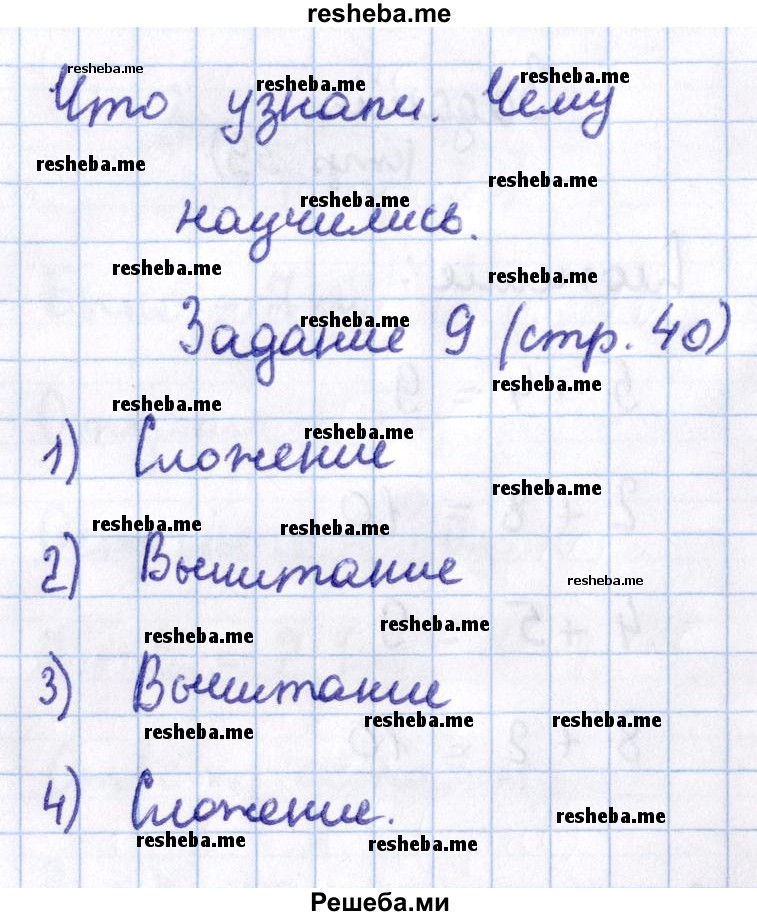 resheba.me
resheba.me
Что узнали. Чему
resheba.me resheba.me
resheba.me
resheba.me
научились.
resheba.me
resheba.me
resheba.me
Задание 9 (стр. 40)
resheba.me
resheba.me
resheba.me
1) Сложение
resheba.me
resheba.me
resheba.me resheba.me
2) Вычитание
resheba.me
resheba.me
resheba.me
3) Вычитание
resheba.me
resheba.me resheba.me
4) Сложение.
resheba.me
resheba.me resheba.me
Решеба.ми